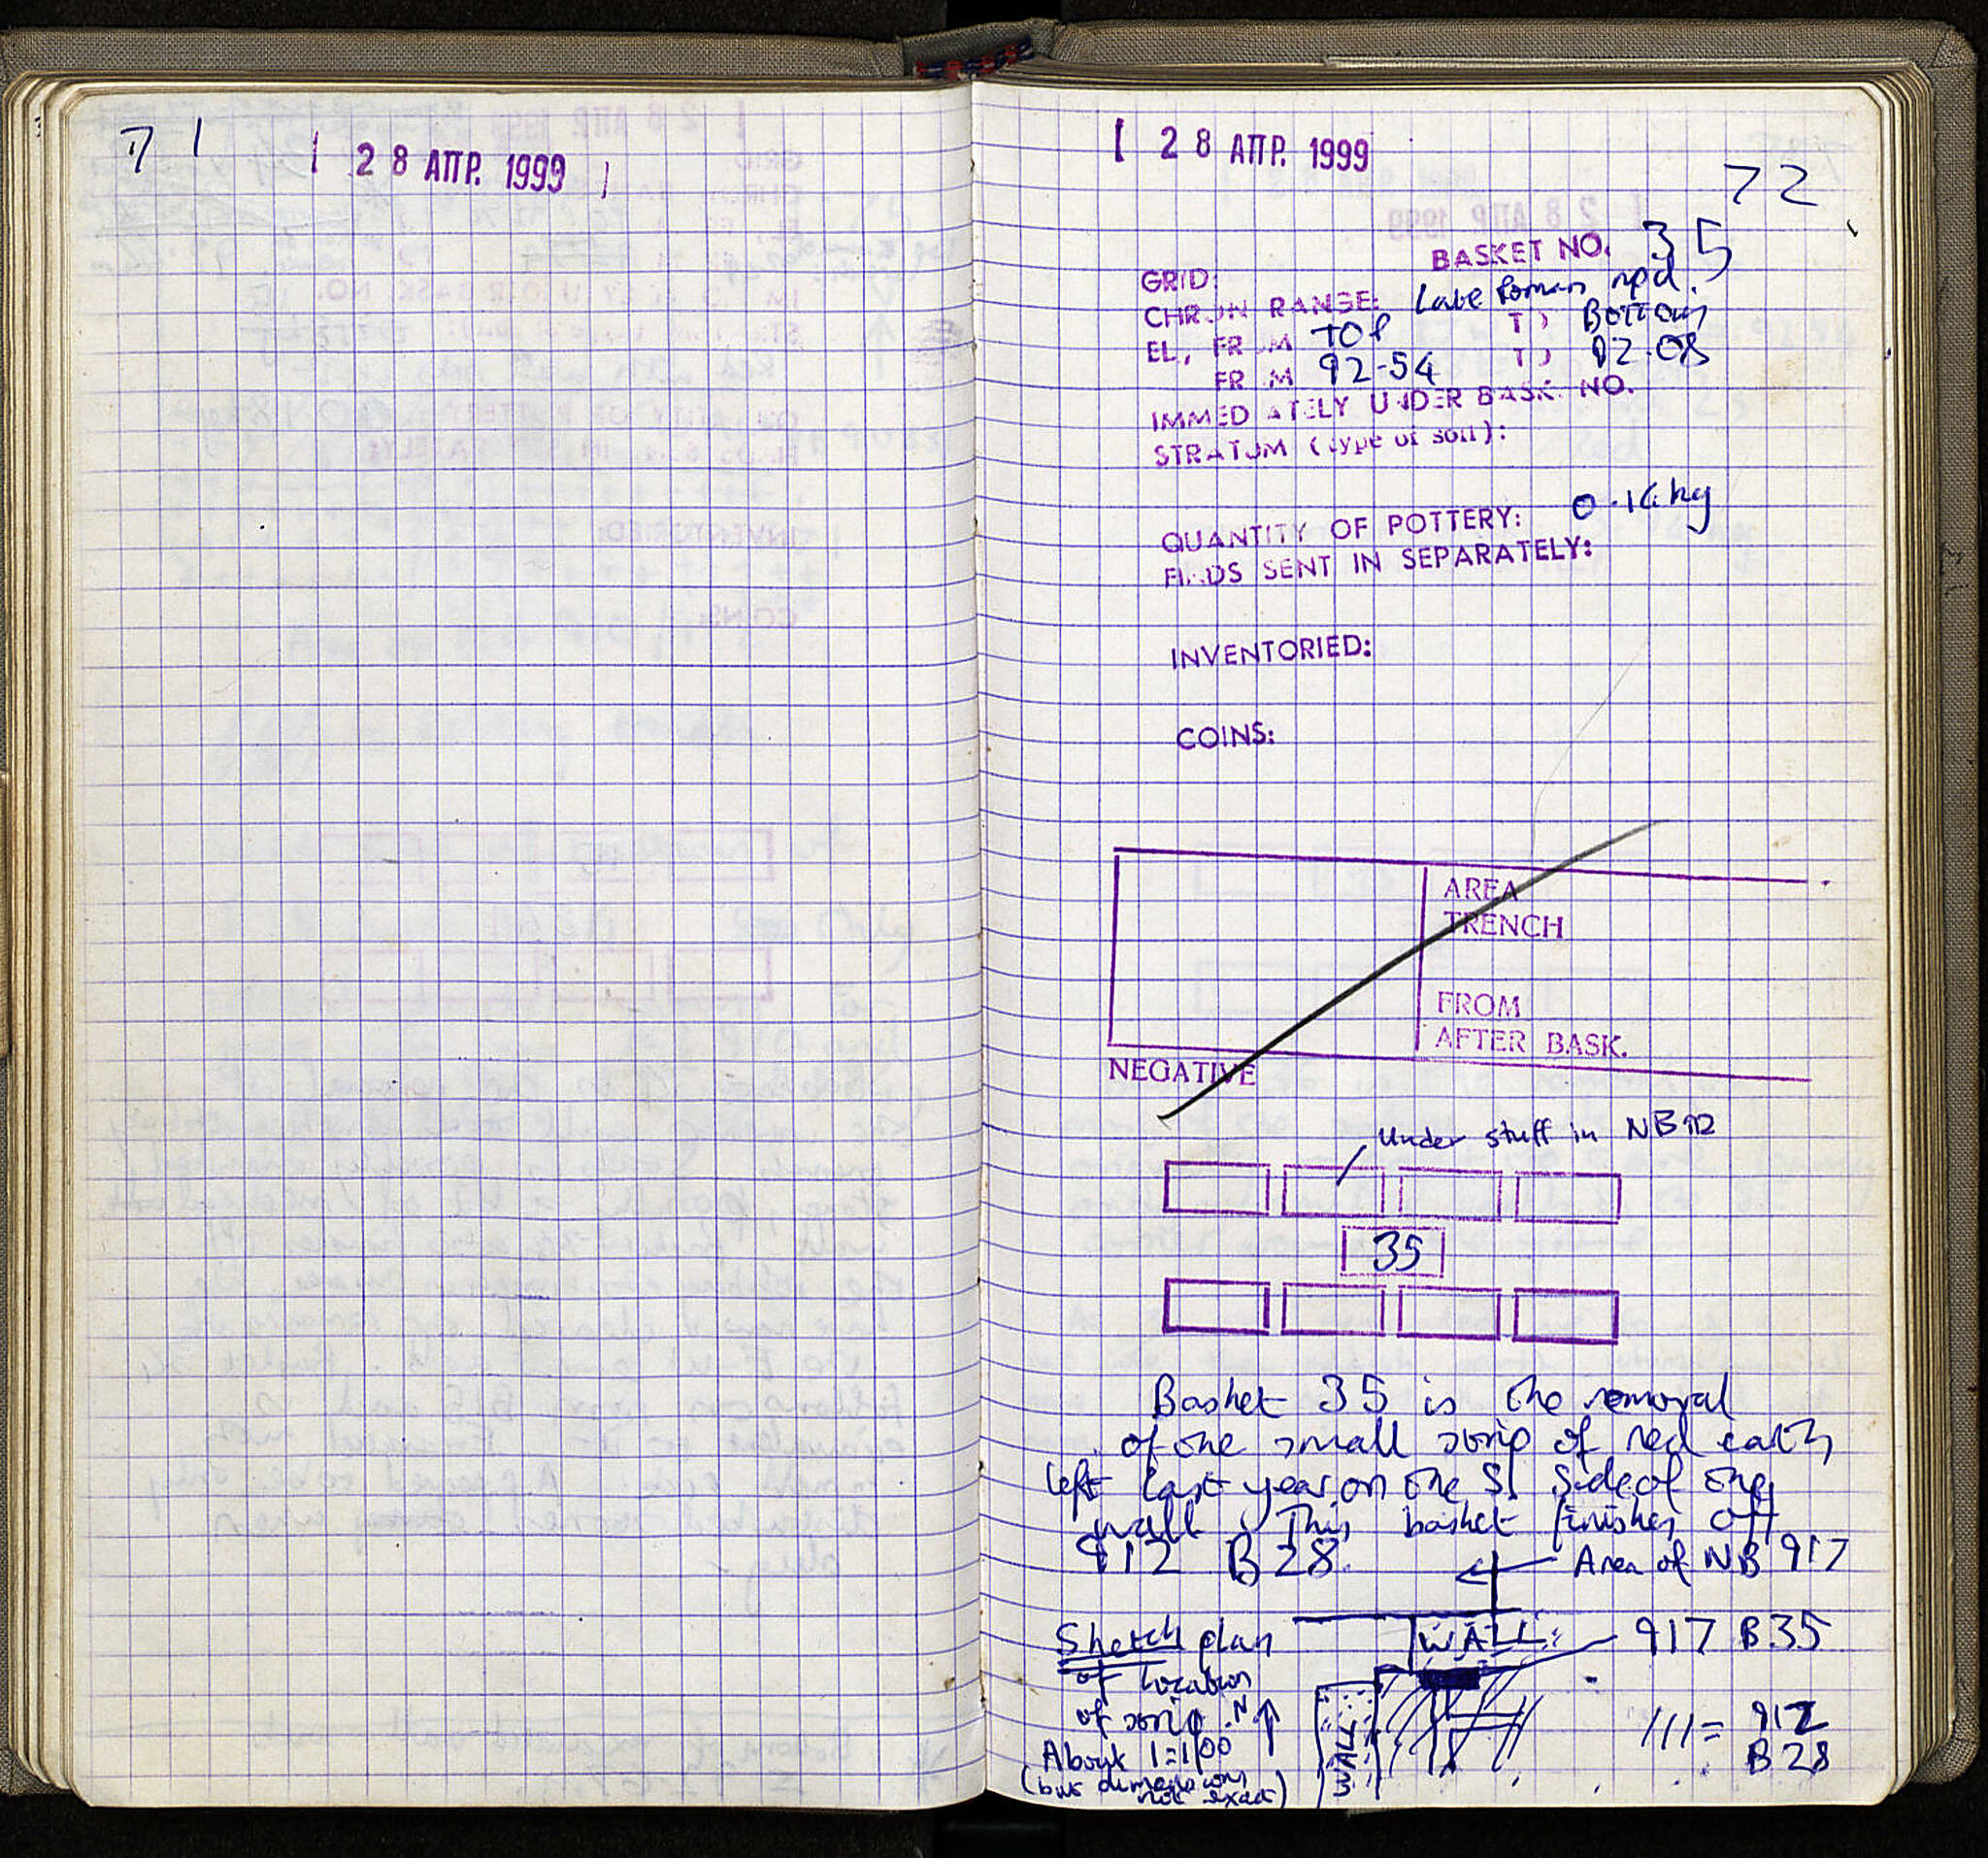 71
28 ΑΠΡ. 1999
28 ΑΠΡ. 1999
72
BASKET NO. 35
GRID:
CHRON RANGE: Late Roman npd.
EL, FROM TOP TO Bottom
FROM 92.54 TO 92.08
IMMEDIATELY UNDER BASK. NO.
STRATUM (type of soil):
QUANTITY OF POTTERY: 0.16 kg
FINDS SENT IN SEPARATELY:
INVENTORIED:
COINS:
AREA
TRENCH
FROM
AFTER BASK.
NEGATIVE
Under stuff in NB 912
35
Basket 35 is the removal
of one small strip of red earth
left last year on the S. side of the
wall. This basket finishes off
912 B28.
Area of NB 917
WALL
917 B35
Sketch plan
of location
of strip N
WALL
About 1=100
(but dimensions
not exact)
/// = 912
B28